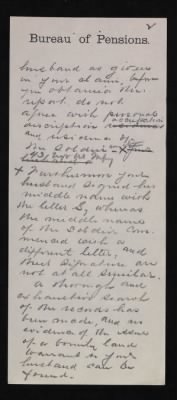 2
Bureau of Pensions.
husband as given
in your claim, before
you obtained this
report do not
agree with personal
description occupation
and residence of
the Soldier
+ Furthermore your
husband signed his
middle name with
the letter S, whereas
the middle name
of the Soldier com-
menced with a
different letter, and
their signature are
not at all similar.
A thorough and
exhaustive search
of the records has
been made, and no
evidence of the issue
of a bounty land
warrant to your
husband can be
found.